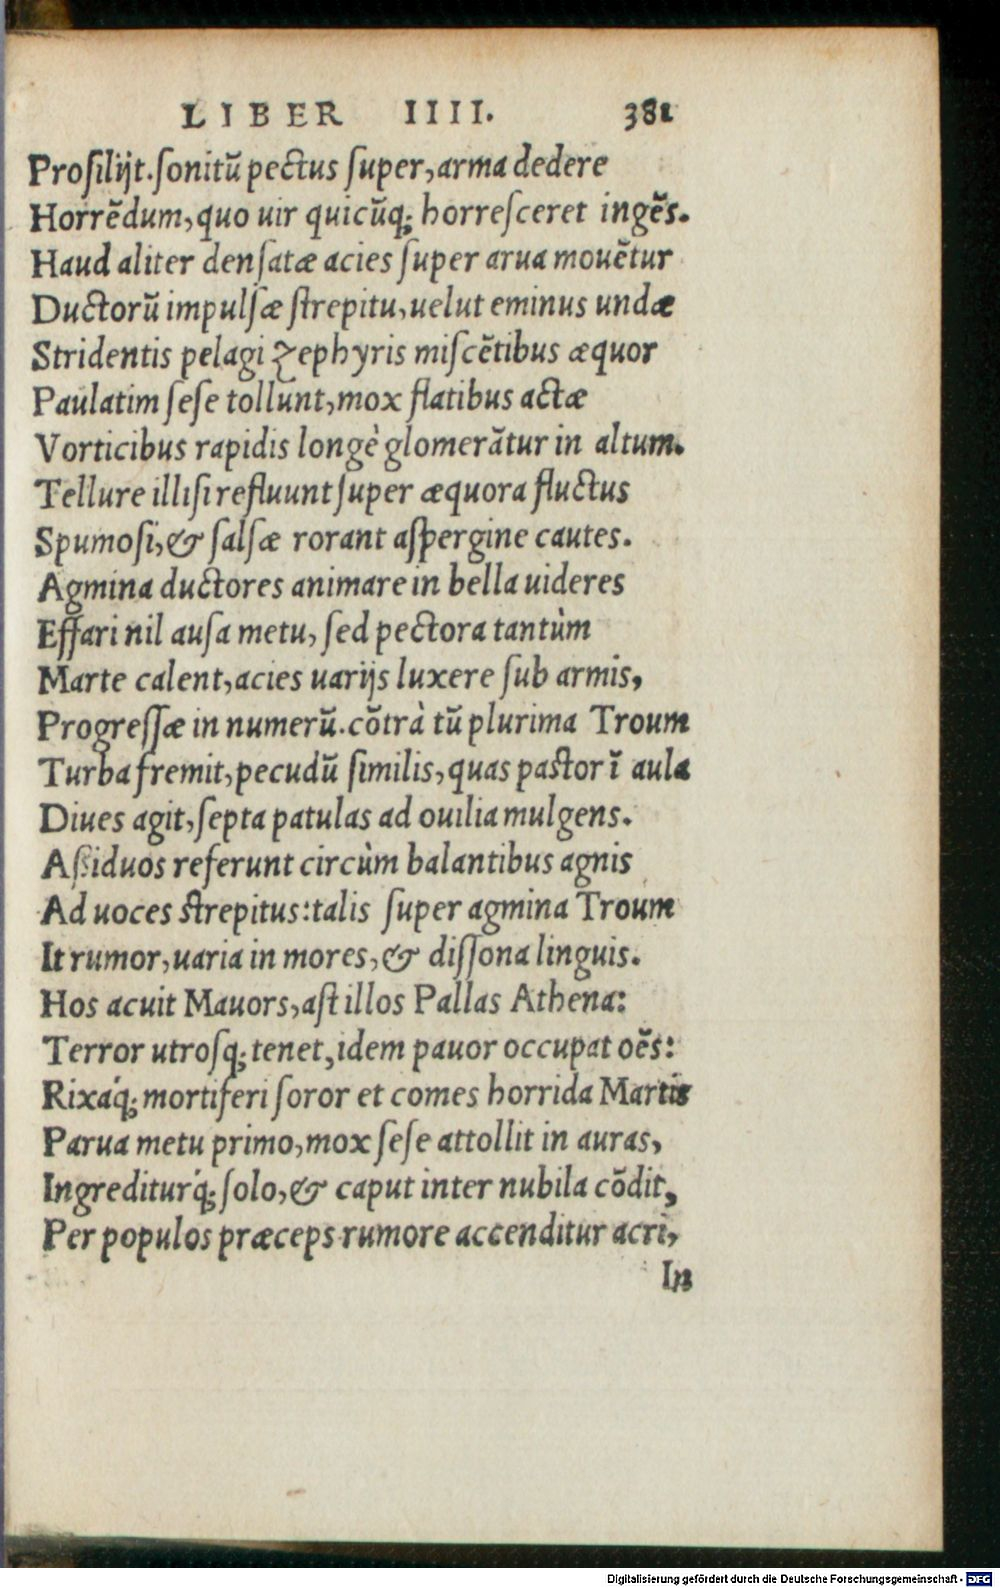 LIBER IIII. 381
Prosilijt. sonitū pectus super, arma dedere
Horrēdum, quo uir quicūq; horresceret ingēs.
Haud aliter densatæ acies super arua mouētur
Ductorū impulsæ strepitu, uelut eminus undæ
Stridentis pelagi zephyris miscētibus æquor
Paulatim sese tollunt, mox flatibus actæ
Vorticibus rapidis longè glomerātur in altum.
Tellure illisi refluunt super æquora fluctus
Spumosi, & salsæ rorant aspergine cautes.
Agmina ductores animare in bella uideres
Effari nil ausa metu, sed pectora tantùm
Marte calent, acies uarijs luxere sub armis,
Progressæ in numerū. cōtrà tū plurima Troum
Turba fremit, pecudū similis, quas pastor ī aula
Diues agit, septa patulas ad ouilia mulgens.
Assiduos referunt circùm balantibus agnis
Ad uoces strepitus: talis super agmina Troum
It rumor, uaria in mores, & dissona linguis.
Hos acuit Mauors, ast illos Pallas Athena:
Terror utrosq; tenet, idem pauor occupat oēs:
Rixáq; mortiferi soror et comes horrida Martis
Parua metu primo, mox sese attollit in auras,
Ingrediturq́; solo, & caput inter nubila cōdit,
Per populos præceps rumore accenditur acri,
In
Digitalisierung gefördert durch die Deutsche Forschungsgemeinschaft - DFG